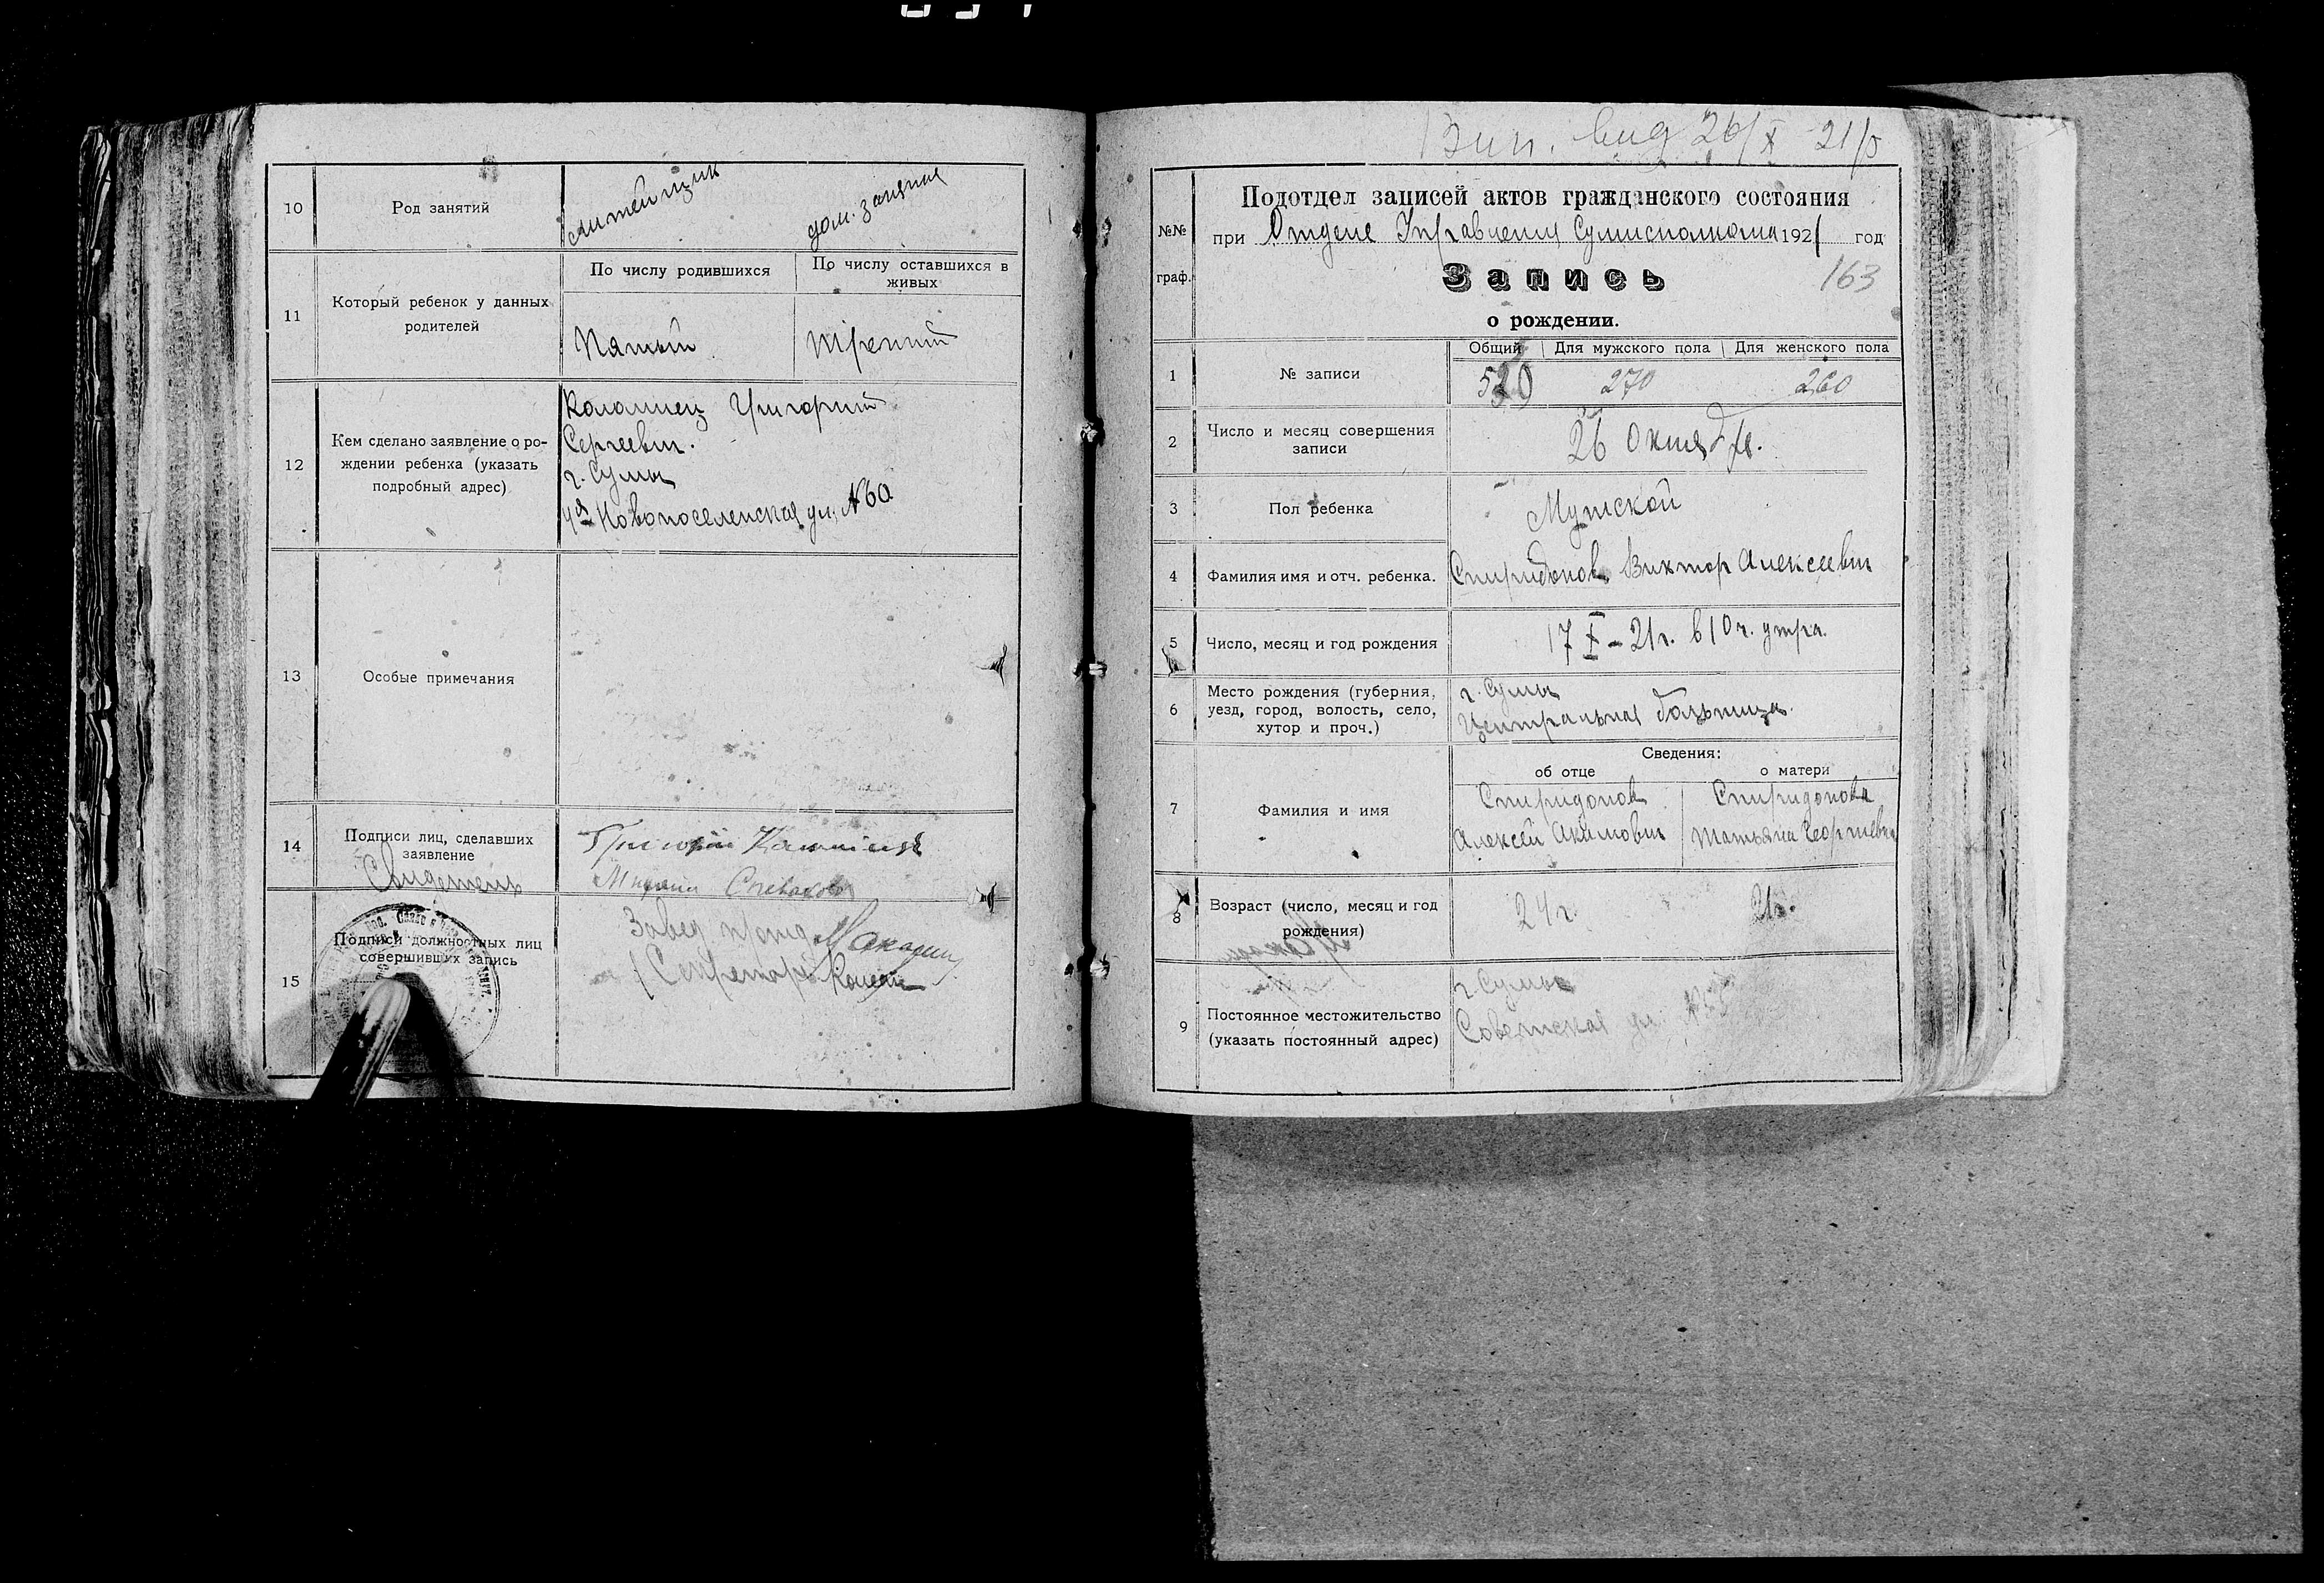 10
Род занятий
Литейщик
дом. занятие
11
Который ребенок у данных
родителей
По числу родившихся
По числу оставшихся в
живых
Пятый
третий
12
Кем сделано заявление о ро-
ждении ребенка (указать
подробный адрес)
Коломиец Григорий
Сергеевич.
г. Сумы
Новопоселенская ул. №60
13
Особые примечания
14
Подписи лиц, сделавших
заявление
Свидетель
Григорій
15
Подписи должностных лиц
совершивших запись
Завед
Секретарь
26/X 21
№№
граф.
Подотдел записей актов гражданского состояния
при Отделе Управления Сумисполкома 1921 год
Запись
163
о рождении.
1
№ записи
Общий
Для мужского пола
Для женского пола
270
260
2
Число и месяц совершения
записи
26 Октября.
3
Пол ребенка
Мужской
4
Фамилия имя и отч. ребенка.
Спиридонов Виктор Алексеевич
5
Число, месяц и год рождения
17 X – 21г. в 10 ч. утра.
6
Место рождения (губерния,
уезд, город, волость, село,
хутор и проч.)
г. Сумы
Центральная больница.
Сведения:
об отце
о матери
7
Фамилия и имя
Спиридонов
Алексей Акимович
Спиридонова
Татьяна Георгиевна
8
Возраст (число, месяц и год
рождения)
24 г.
21г.
9
Постоянное местожительство
(указать постоянный адрес)
г. Сумы
Советская ул.